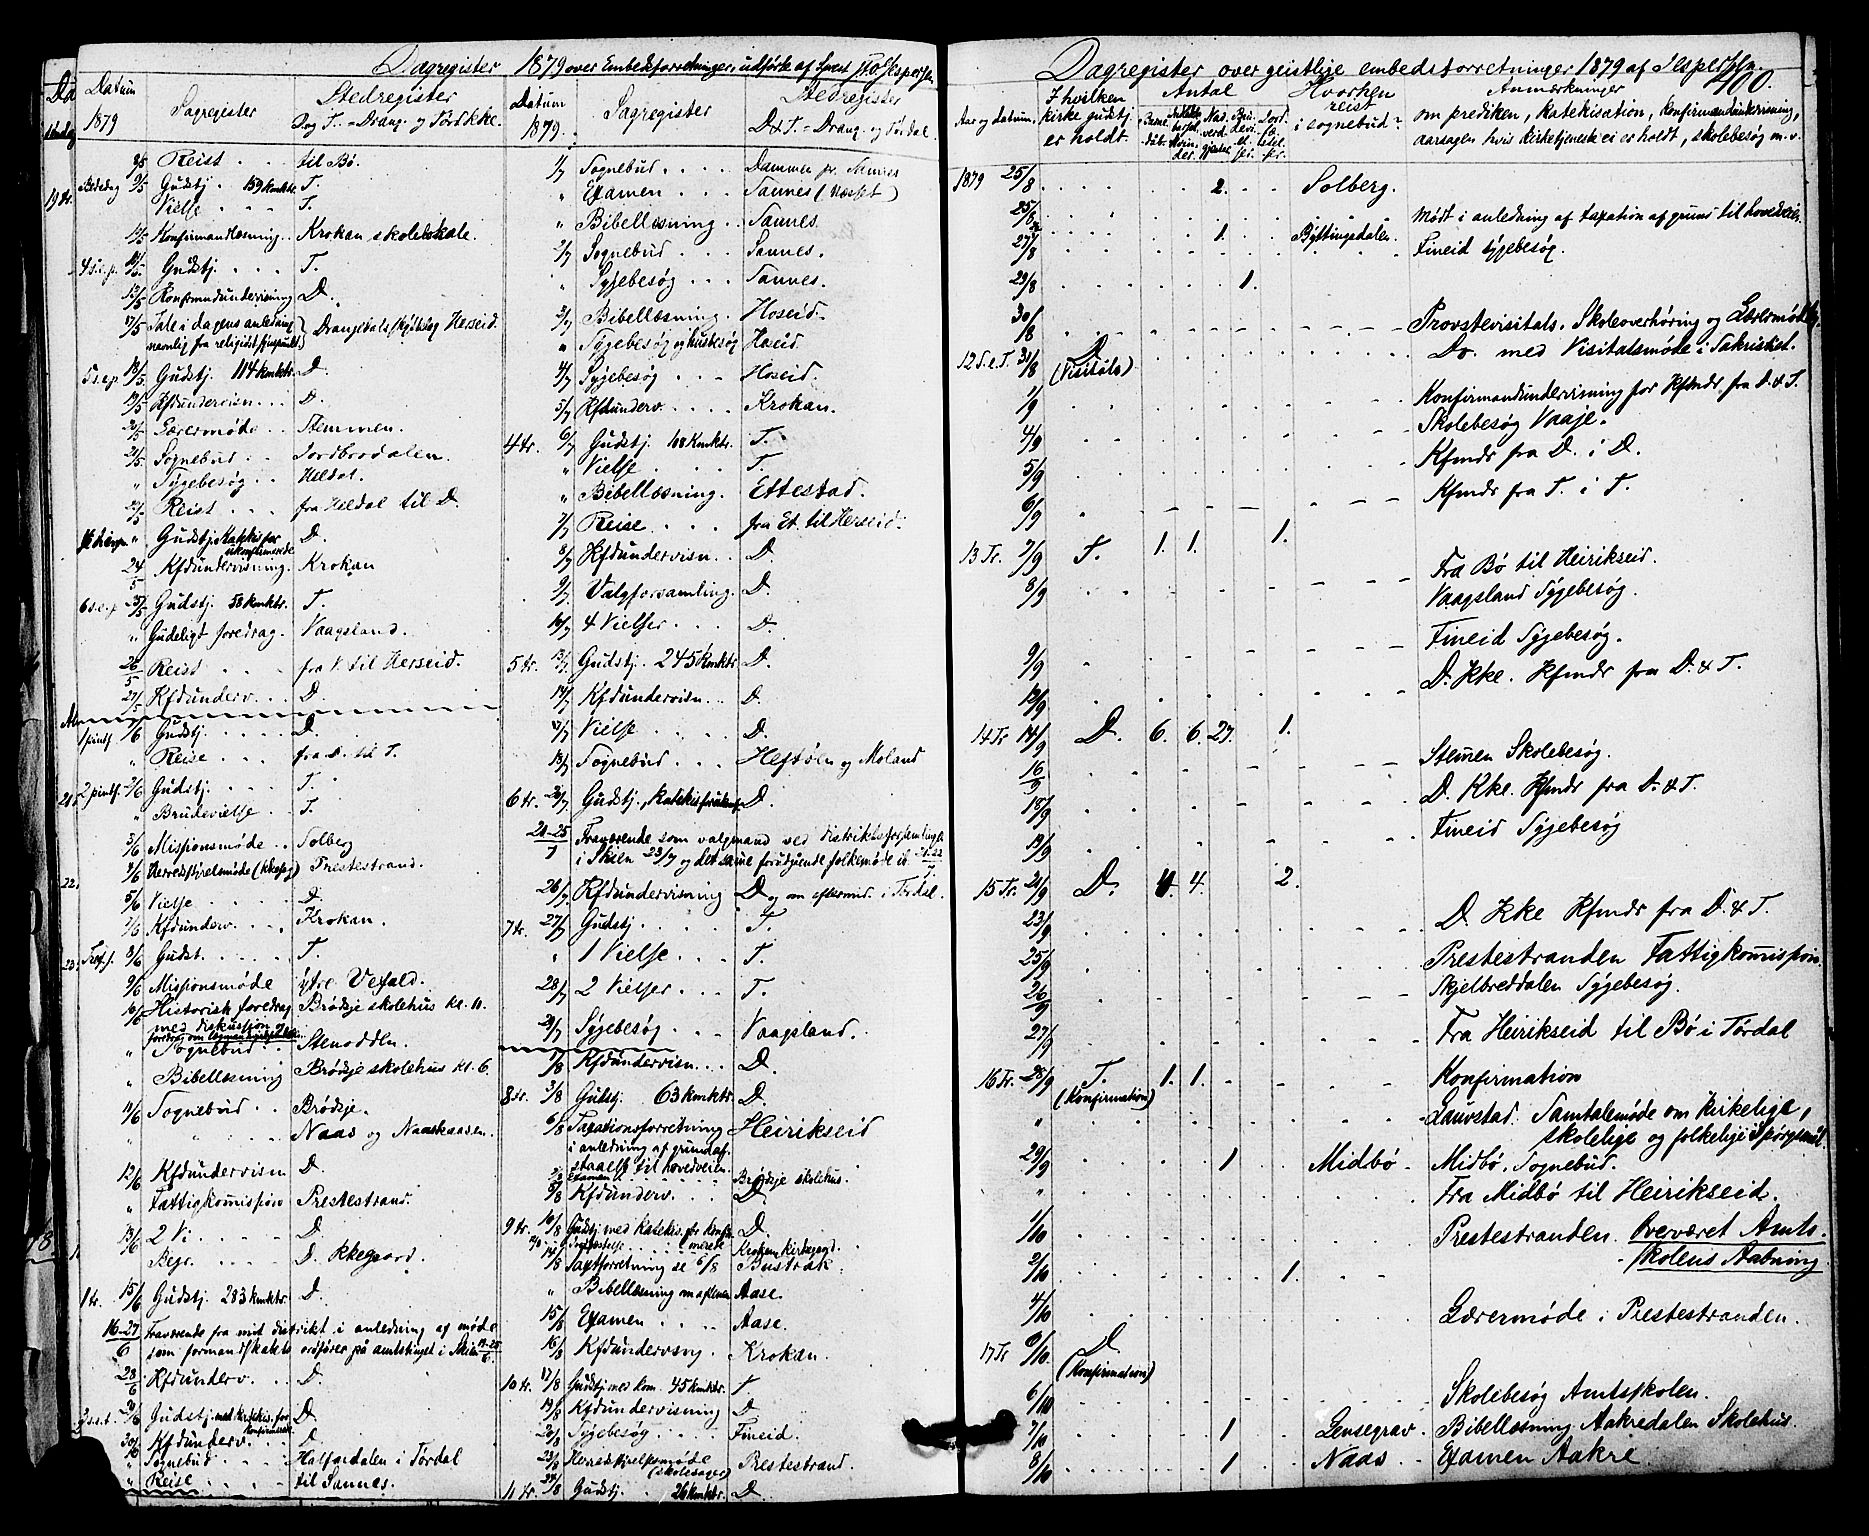 Dagregister 1879 over Embedsforretninger, udførte af
Datum 1879
Sagregister
Stedregister
D og T. = Drang. og Tørd. kke.
8/5 Reist . . . til Bø.
Bededag 9/5 Gudstj. 159 kmktr. T.
" Vielse . . . T.
Konfirmandlæsning . . Krokan skolelokale.
4 s.e.p. Gudstj. . . . T.
Konfirmdundervisning D.
17/5 Tale i dagens anledning
navnlig fra religiøst synspunkt } Drangedals skytterlag Herseid.
5 s.e.p. 18/5 Gudstj. 114 kmktr. D.
19/5 Kfdundervisn. . . D.
20/5 Lærermøde . . Stemmen.
21/5 Sognebud . . Jordbrodalen.
" Sygebesøg . . Heldal.
22/5 Reist . . fra Heldal til D.
" Gudstj. Katekis for
ukonfirmerede D.
24/5 Kfdundervisning. Krokan
6 s.e.p. 25/5 Gudstj. 58 kmktr. T.
" Gudeligt foredrag. Vaagsland.
26/5 Reist . . fra V. til Herseid.
27/5 Kfdunderv. . . D.
1 pintsd. 1/6 Gudstj. . . . D.
" Reise . . . fra D. til T.
2 pintsd. 2/6 Gudstj. . . . T.
" Brudevielse . . T.
3/6 Missionsmøde . . Solberg
4/6 Herredsstyrelsmøde (kkesag) Prestestrand.
5/6 Vielse . . . D.
7/6 Kfdunderv. . . Krokan.
Tref. s. 8/6 Gudst. . . T.
9/6 Missionsmøde ytre Vefald.
10/6 Historisk foredrag Brødsje skolehus kl. 11.
med diskussion og
" Sognebud . . Stenodden.
" Bibellæsning Brødsje skolehus kl. 6.
11/6 Sognebud . . Brødsje.
" " . Naas og Naaskaasen.
12/6 Kfdundervisn D.
" Fattigkommission Prestestrand.
13/6 2 Vi. . . . D.
" Begr. . . . D. kkegaard.
1 tr. 15/6 Gudstj. 283 kmktr. D.
16–27/6 Fraværende fra mit distrikt i anledning af møde
som formandskabets ordfører på amtstinget i Skien
28/6 Kfdunderv. . . D.
Gudstj. med katekis. for
konfirmerede D.
30/6 Kfdunderv. . . D
" Sognebud . . Halfardalen i Tørdal
" Reise . . . til Sannes.
Datum 1879.
Sagregister
Stedregister
D & T. = Drang. og Tørdal.
1/7 Sognebud . . . Dammen pr. Sannes
" Examen . . . Sannes (Næset)
" Bibellæsning . . Sannes.
2/7 Sognebud . . . Sannes.
" Sygebesøg . . . Sannes.
3/7 Bibellæsning . Hoseid.
" Sygebesøg og husbesøg Hoseid.
4/7 Sygebesøg . . . Hoseid.
5/7 Kfdunderv. . . . Krokan.
4 tr. 6/7 Gudstj. 108 kmktr. T.
" Vielse . . . T.
" Bibellæsning. Ettestad.
7/7 Reise . . . fra Et. til Herseid.
8/7 Kfdundervisn. . D.
9/7 Valgforsamling. D.
10/7 4 Vielser . . . D.
5 tr. 13/7 Gudstj. 245 kmktr D.
14/7 Kfdundervisn. . D.
17/7 Vielse . . . . D.
18/7 Sognebud . . . Heftøln og Moland
6 tr. 20/7 Gudstj., D.
20–25/7 Fraværende som valgmand ved distriktsforsamlingen
i Skien 23/7 og det samme forudgående folkemøde ib
26/7 Kfdundervisning D. og om eftermid. i Tørdal.
7 tr. 27/7 Gudstj. . . . T.
" 1 Vielse . . . T.
28/7 2 Vielser . . . T.
29/7 Sygebesøg . . Vaagsland.
1/8 Kfdundervisn. . . D.
8 tr. 3/8 Gudstj. 63 kmktr. D.
6/8 Taxationsforretning Heirikseid
i anledning af grundaf-
staaelse til hovedveien.
Examen . . . Brødsje skolehus.
Kfdunderv. . . D.
9 tr. 10/8 Gudstj. med katekis. for konfir-
merede D.
Krokan kirkegaard.
Taxtforretning se 6/8 Bustrak.
" Bibellæsning om aftenen Aase.
15/8 Examen . . . Aase.
16/8 Kfdundervsng . Krokan.
10 tr. 17/8 Gudstj. med kom. 45 kmktr. T.
19/8 Kfdundervisning D.
20/8 Sygebesøg . . . Fineid.
23/8 Herredsstyrelsemøde
(skolesager) Prestestrand.
11 tr. 24/8 Gudstj. . 26 kmktr. D.
Dagregister over geistlige embedsforretninger 1879 af Jespersen.
400.
Aar og datum.
I hvilken kirke gudstj. er holdt.
Antal
Hvorhen reist i sognebud?
Anmærkninger
om prediken, katekisation, konfirmandundervisning,
aarsagen hvis kirketjeneste ei er holdt, skolebesøg m.v.
1879 25/8 . . . 2. . . Solberg.
25/8 . . . Mødt i anledning af taxation af grund til hovedveien.
27/8 . . . 1. . . Byttingsdalen. Fineid sygebesøg.
29/8 . . . 1.
30/8 . . . Provstevisitats. Skoleoverhøring og Lærermøde
12 S.e.T. 31/8 D. (Visitats) Do. med Visitatsmøde i Sakristiet.
1/9 . . . Konfirmandundervisning for Kfmdr fra D. & T.
4/9 . . . Skolebesøg Vaaje.
5/9 . . . Kfmdr fra D. i D.
6/9 . . . Kfmdr fra T. i T.
13 Tr. 7/9 T. 1. 1. 1.
8/9 . . . Fra Bø til Heirikseid.
Vaagsland Sygebesøg.
9/9 . . . Fineid Sygebesøg.
. . . D. Kke. Kfmdr fra D. & T.
14 Tr 14/9 D. 6. 6. 27. 1.
16/9 . . . Stemen Skolebesøg.
18/9 . . . D. Kke. Kfmdr fra D. & T.
19/9 . . . Fineid Sygebesøg
15 Tr. 21/9 D. 4. 4. 2.
23/9 . . . D. Kke Kfmdr fra D. & T.
25/9 . . . Prestestranden Fattigkommission.
26/9 . . . Skjelbreddalen Sygebesøg.
27/9 . . . Fra Heirikseid til Bø i Tørdal
16 Tr. 28/9 T. 1. 1. (Konfirmation) Konfirmation
" . . . Lauvstad. Samtalemøde om kirkelige,
skolelige og folkelige Spørgsmål.
29/9 . . . 1 . Midbø. Midbø. Sognebud.
" . . . Fra Midbø til Heirikseid.
1/10 . . . Prestestranden. Overværet Amts-
skolens Aabning
2/10 . . . 1.
4/10 . . . Lærermøde i Prestestranden.
17 Tr D (Konfirmation)
6/10 . . . Skolebesøg Amtsskolen.
7/10 . . . 1 Lensegrav. Bibellæsning Aakredalen Skolehus.
8/10 . . . 1 Naas . . Examen Aakre.